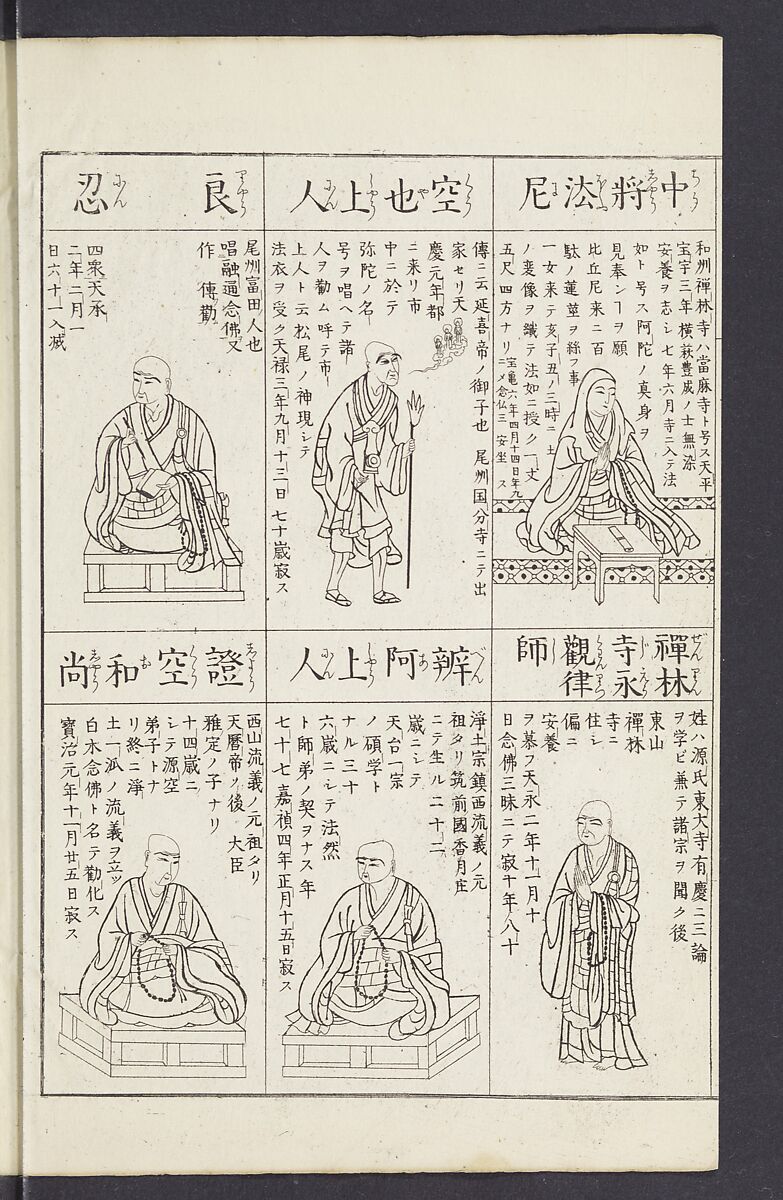 中將法尼
和州禪林寺ハ當麻寺ト号ス天平
宝字三年横萩豊成ノ士無染
安養ヲ志シ七年六月寺ニ入テ法
如ト号ス阿陀ノ真身ヲ
見奉ンヿヲ願
比丘尼来ニ百
駄ノ蓮莖ヲ絲フ事
一女来テ亥子丑ノ三時ニ
ノ変像ヲ織テ法如ニ授ク一丈
五尺四方ナリ
宝亀六年四月十四日年九
ニメ念仏三安坐ス
空也上人
傳ニ云延喜帝ノ御子也尾州国分寺ニテ出
家セリ天
慶元年都
ニ来リ市
中ニ於テ
弥陀ノ名
号ヲ唱ヘテ諸
人ヲ勸ム呼テ市
上人ト云松尾ノ神現シテ
法衣ヲ受ク天禄三年九月十三日七十歳寂ス
良忍
尾州富田人也
唱融通念佛又
作傳勸
四衆天承
二年二月一
日六十一入滅
禪林寺永觀律師
姓ハ源氏東大寺有慶ニ三論
ヲ学ビ兼テ諸宗ヲ聞ク後
東山
禪林
寺ニ
住シ
偏ニ
安養
ヲ慕フ天永二年十一月十
日念佛三昧ニテ寂ス年八十
辨阿上人
淨土宗鎮西流義ノ元
祖タリ筑前國香月庄
ニテ生ル二十二
歳ニシテ
天台一宗
ノ碩学ト
ナル三十
六歳ニシテ法然
ト師弟ノ契ヲナス年
七十七嘉禎四年正月十五日寂ス
證空和尚
西山流義ノ元祖タリ
天暦帝ノ後大臣
雅定ノ子ナリ
十四歳ニ
シテ源空
弟子トナ
リ終ニ淨
土一派ノ流義ヲ立ツ
白木念佛ト名テ勸化ス
寶治元年十一月廿五日寂ス